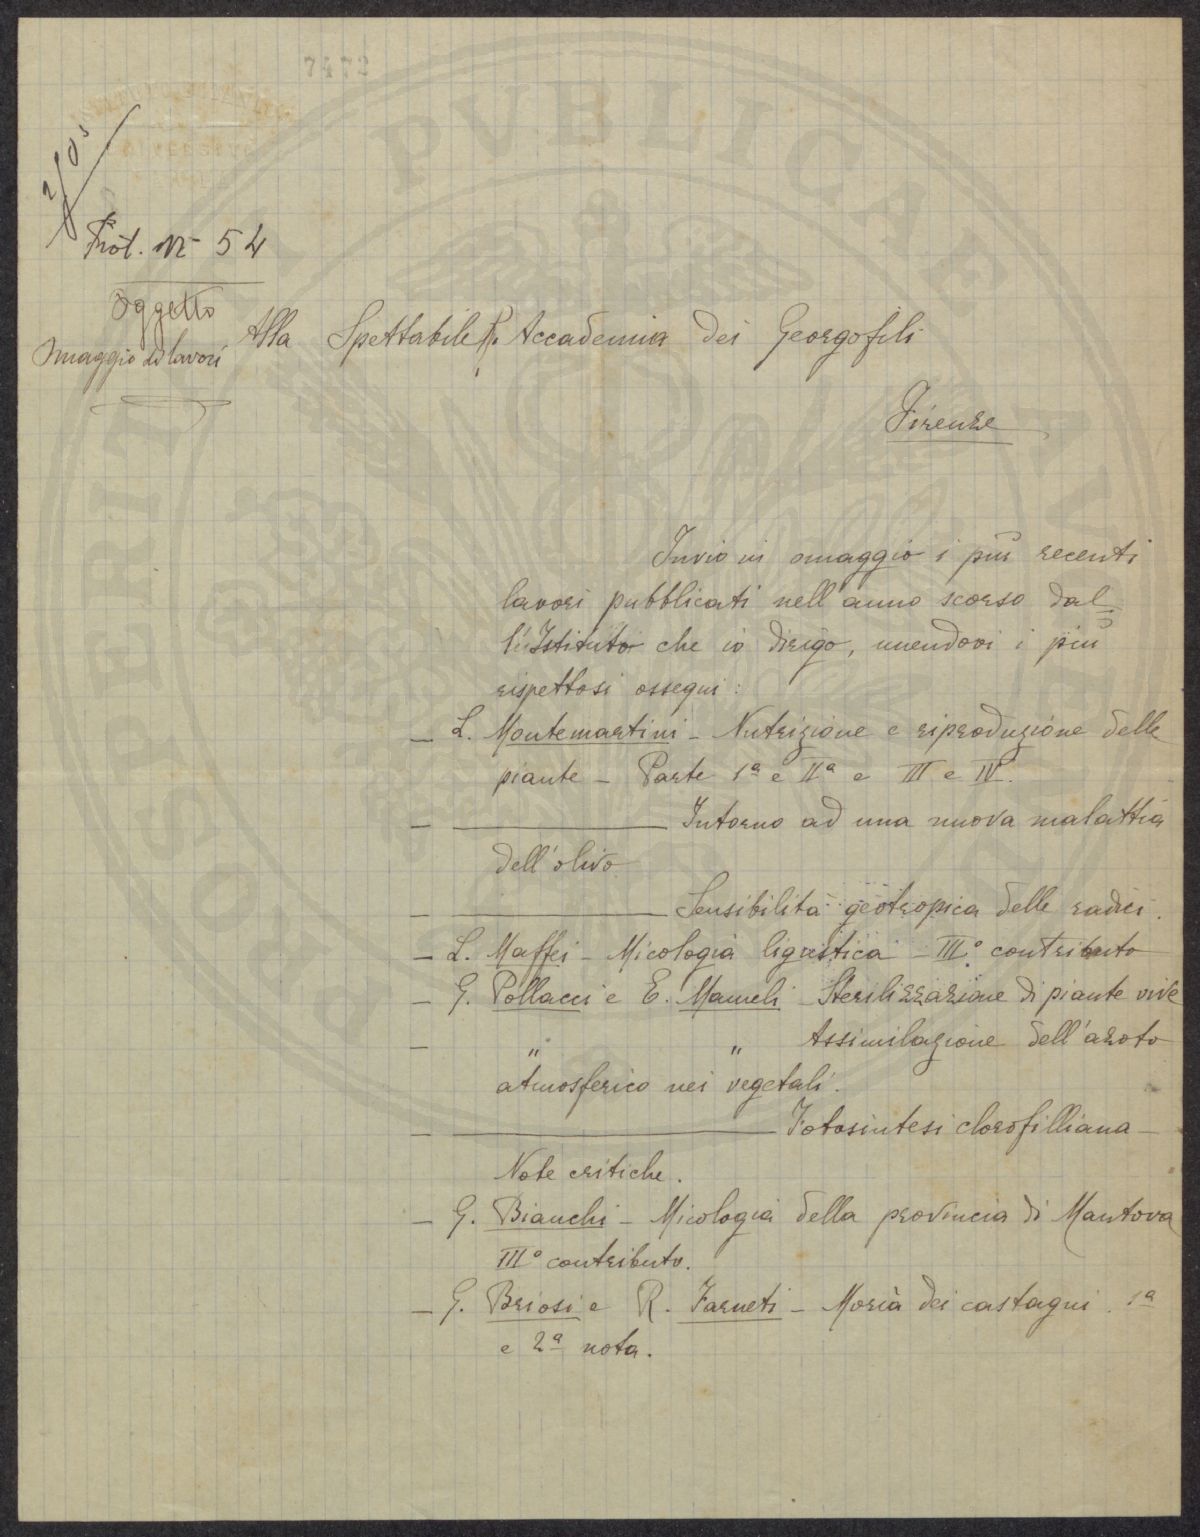 7472
Prot. N° 54
Oggetto
Omaggio di lavori
Alla Spettabile R. Accademia dei Georgofili
Firenze
Invio in omaggio i più recenti
lavori pubblicati nell'anno scorso dal=
l'Istituto che io dirigo, unendovi i più
rispettosi ossequi:
— L. Montemartini – Nutrizione e riproduzione delle
piante – Parte 1ª e IIª e III e IV.
— ——— Intorno ad una nuova malattia
dell'olivo
— ——— Sensibilità geotropica delle radici.
— L. Maffei – Micologia ligustica – III° contributo
— G. Pollacci e E. Mameli – Sterilizzazione di piante vive
— " " Assimilazione dell'azoto
atmosferico nei vegetali.
— ——— Fotosintesi clorofilliana –
Note critiche.
— G. Bianchi – Micologia della provincia di Mantova
III° contributo.
— G. Briosi e R. Farneti – Morìa dei castagni. 1ª
e 2ª nota.